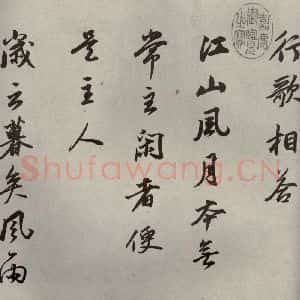 行歌相答
江山風月本無
常主閑者便
是主人
歲云暮矣風雨
Shufawang.CN